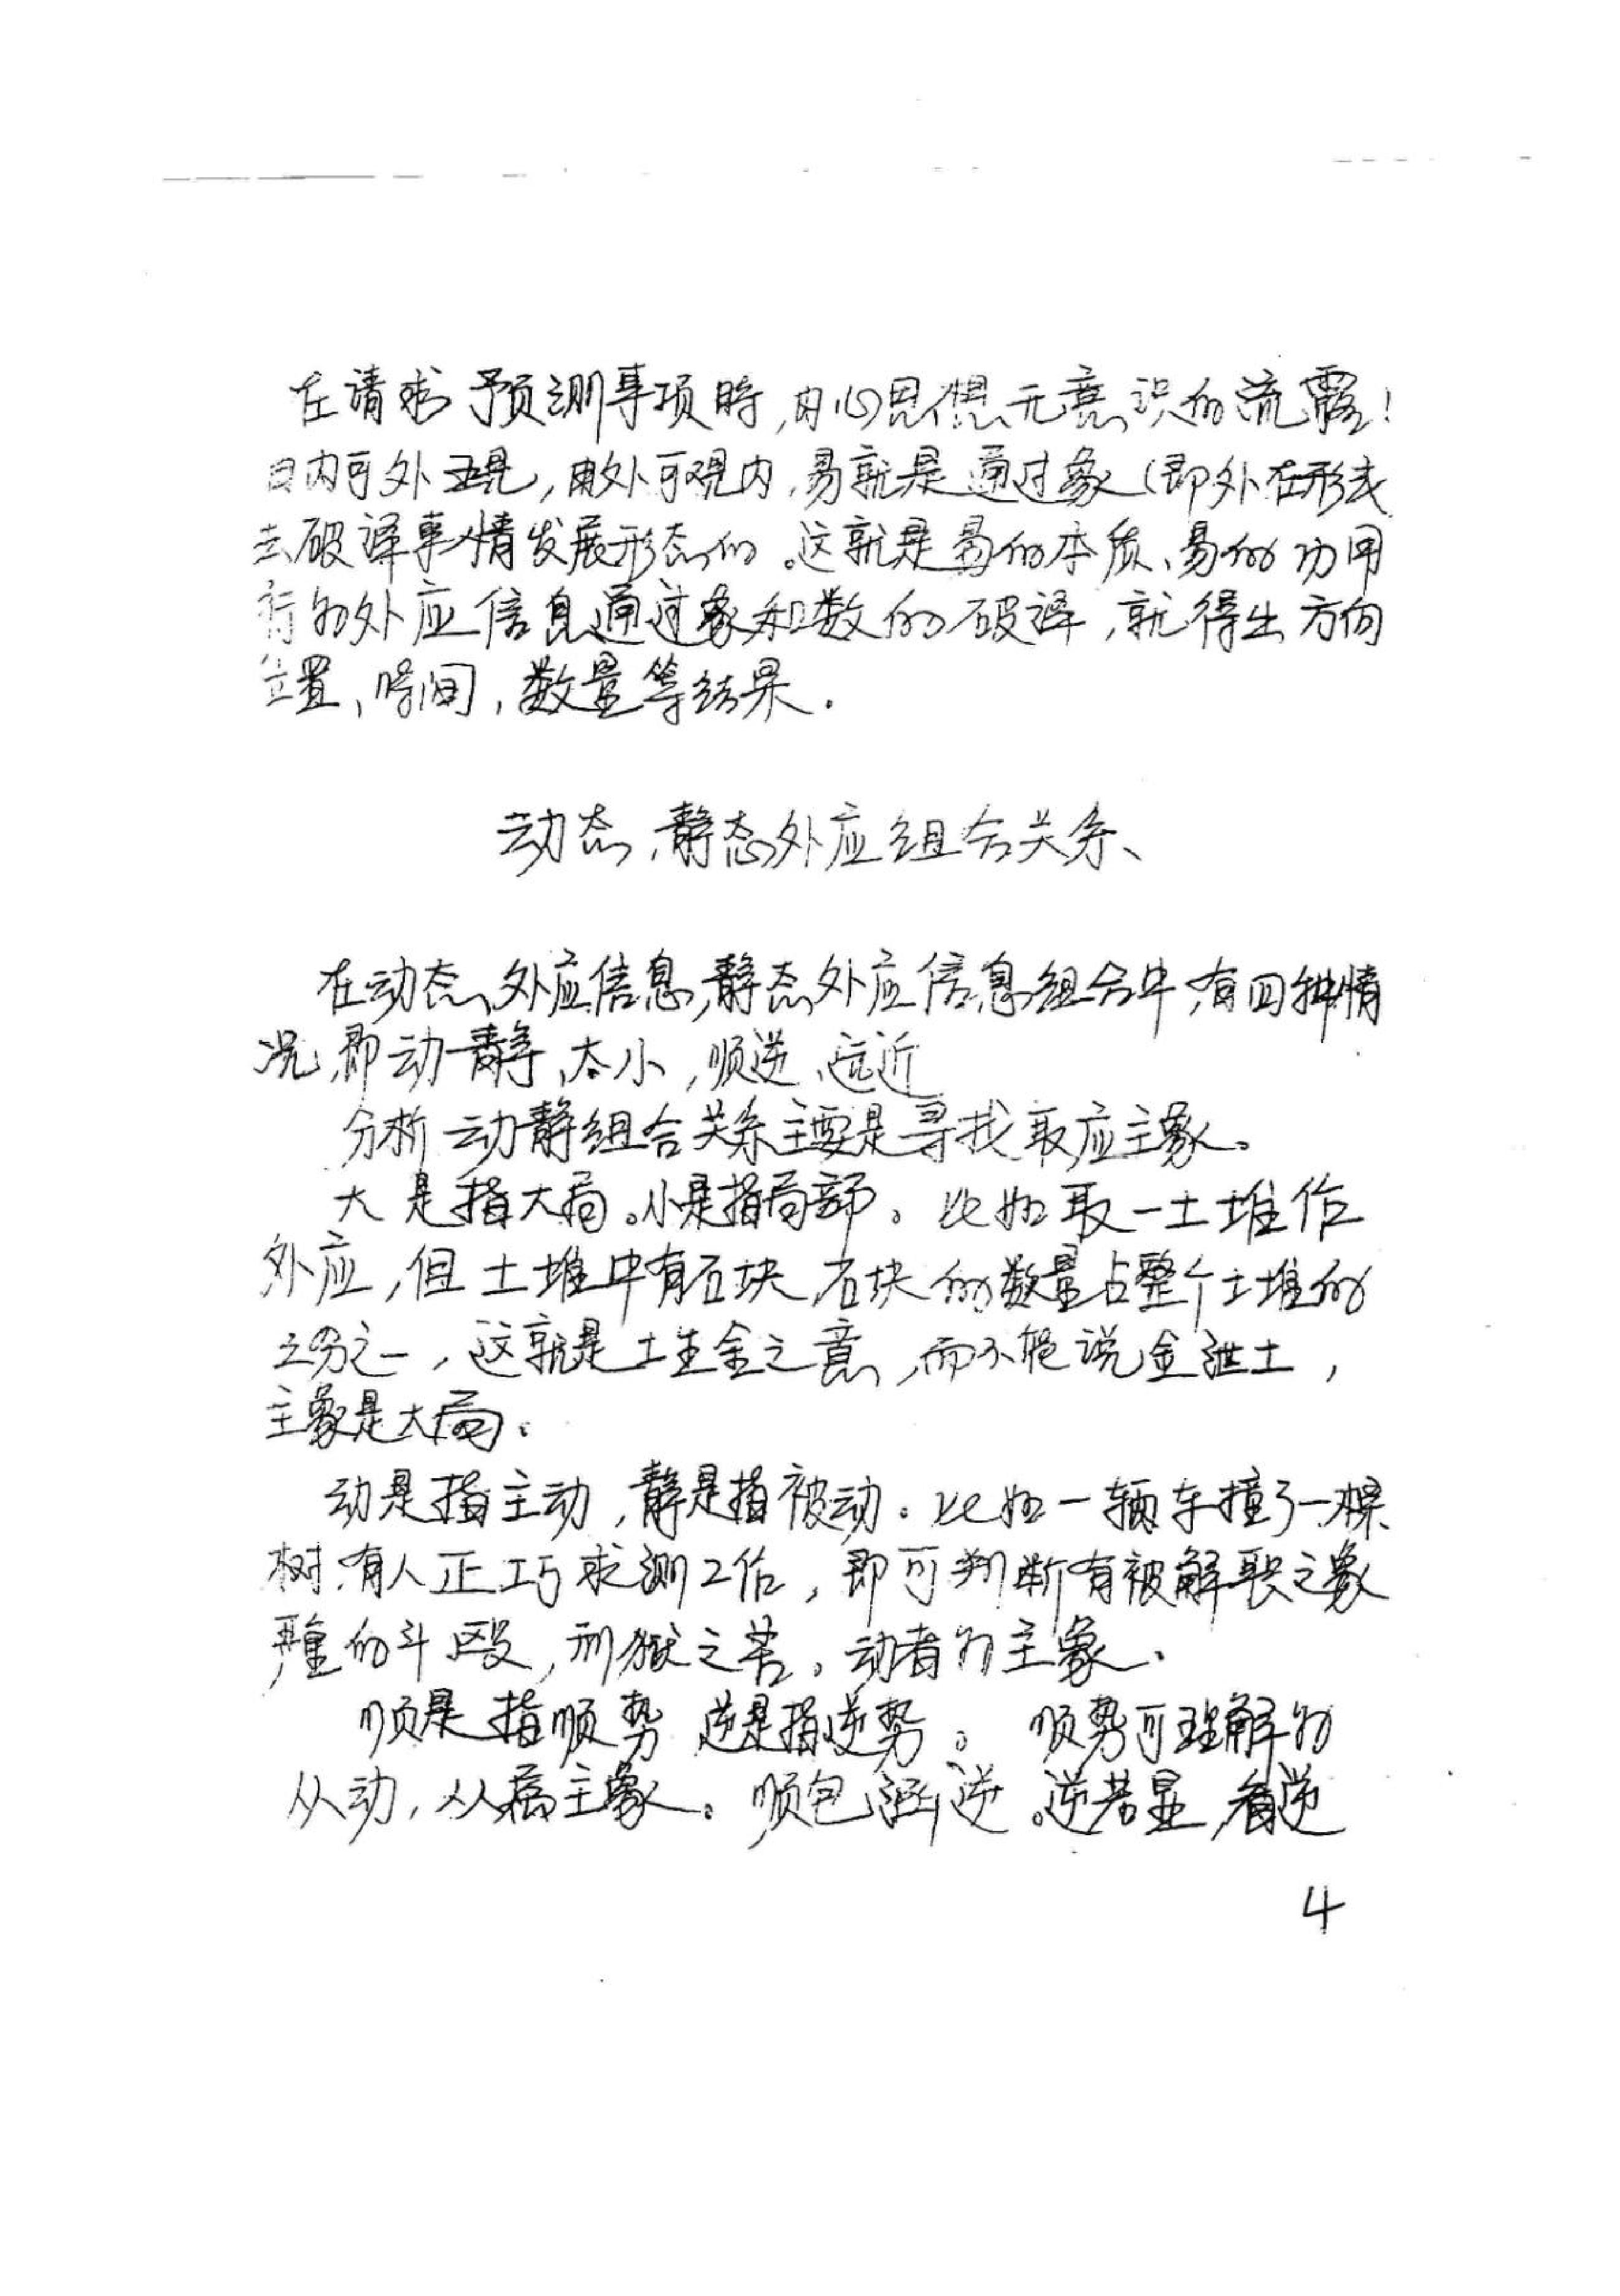 在请求预测事项时,内心思想无意识的流露!
由内可外现,由外可观内,易就是通过象(即外在形式
去破译事情发展形态的。这就是易的本质、易的功用
行的外应信息通过象和数的破译,就得出方向
位置、时间,数量等结果.
动态,静态外应组合关系、
在动态外应信息,静态外应信息组合中,有四种情
况,即动静、大小,顺逆、远近
分析动静组合关系主要是寻找取应主象。
大是指大局。小是指局部。比如取一土堆作
外应,但土堆中有石块,石块的数量占整个土堆的
分之一,这就是土生金之意,而不能说金泄土,
主象是大局。
动是指主动,静是指被动。比如一辆车撞了一棵
树,有人正巧求测工作,即可判断有被解职之象
严重的斗殴,刑狱之苦。动者为主象、
顺是指顺势 逆是指逆势。 顺势可理解为
从动,从属主象。顺包涵逆。逆若显,看逆
4